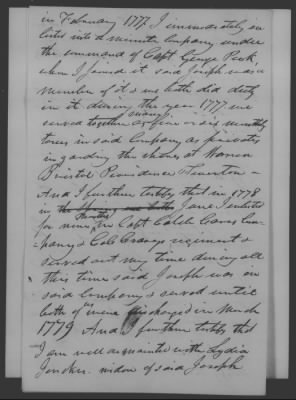 in February 1777 I immediately in
listed into a minute Company under
the command of Capt George Peck,
when I joined it said Joseph was a
member of it & we both did duty
in it during the year 1777 we
served together as five or six monthly
tours in said Company as privates
in garding the shores at Warren
Bristol Providence & Tiverton -
And I further testify that in 1778
in the June I enlisted
for nine months in Capt Caleb Carrs Com
pany & Col regiment &
served out my time during all
this time said Joseph was in
said Company & served until
both of were discharged in March
1779 And I further testify that
I am well acquainted with Lydia
widow of said Joseph